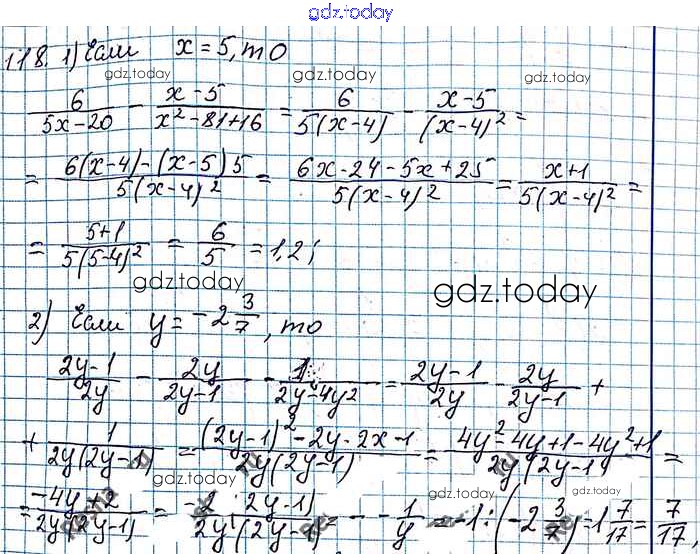 gdz.today
118. 1) Если x = 5, то
gdz.today gdz.today gdz.today
6/(5x-20) - (x-5)/(x²-81+16) = 6/(5(x-4)) - (x-5)/(x-4)² =
= (6(x-4)-(x-5)5)/(5(x-4)²) = (6x-24-5x+25)/(5(x-4)²) = (x+1)/(5(x-4)²) =
= (5+1)/(5(5-4)²) = 6/5 = 1,2;
gdz.today gdz.today
2) Если y = -2 3/7, то
(2y-1)/2y - 2y/(2y-1) - 1/(2y-4y²) = (2y-1)/2y - 2y/(2y-1) +
+ 1/(2y(2y-1)) = ((2y-1)²-2y·2x-1)/(2y(2y-1)) = (4y²-4y+1-4y²+1)/(2y(2y-1)) =
= (-4y+2)/(2y(2y-1)) = (-2(2y-1))/(2y(2y-1)) = -1/y = -1:(-2 3/7) = 1 7/17 = 7/17,